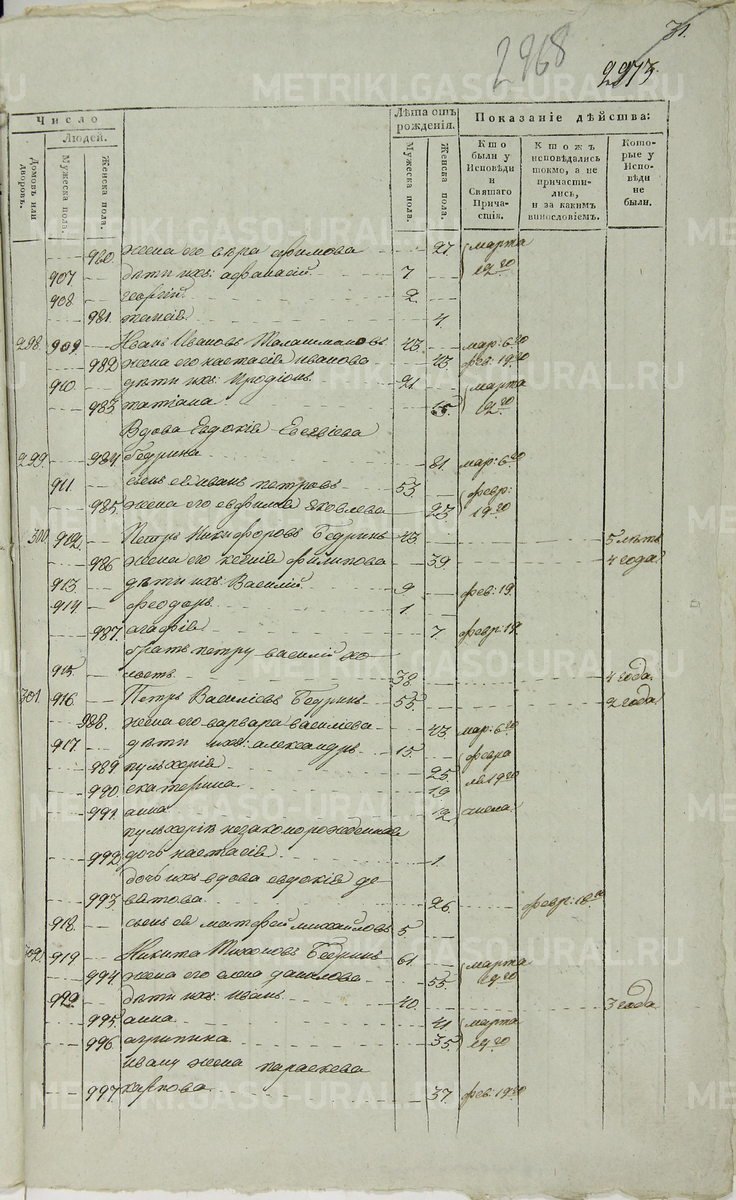 31.
2968
2973.
METRIKI.GASO-URAL.RU
Число
Людей.
Домовъ или дворовъ.
Мужеска пола.
Женска пола.
Лѣта отъ рожденія.
Мужеска пола.
Женска пола.
Показаніе дѣйства:
Кто были у Исповѣди и Святаго Причастія.
Ктожъ исповѣдались токмо, а не причастились, и за какимъ винословіемъ.
Которые у Исповѣди не были.
980 жена его вѣра 27 марта
907 дѣти ихъ: афанасій 7 12го
908 георгій 2
981 4
298 909 Иванъ Ивановъ 43 мар: 6го
982 жена его настасія иванова 43 фев: 19го
910 дѣти ихъ: Иродіонъ 21 марта
983 татіана 15 12го
Вдова Евдокія
299 984 Бедрина 81 мар: 6го
911 сынъ ея иванъ петровъ 53 февр:
985 жена его евфимія яковлева 23 19го
300 912 Петръ Никифоровъ Бедринъ 43 5 лѣтъ
986 жена его ксенія филипова 39 4 года
913 дѣти ихъ: Василій 9 фев: 19
914 феодоръ 1
987 агафія 7 февр: 19
братъ петру василій хо
915 лостъ 38 4 года
301 916 Петръ Василіевъ Бедринъ 55 2 года
988 жена его варвара василіева 43 мар: 6го
917 дѣти ихъ: александръ 15 февра
989 пулхерія 25 ля 19го
990 екатерина 19
991 анна 12
пулхеріи незаконорожденная
992 дочь настасія 1
дочь ихъ вдова евдокія де
993 вятова 26 февр: 18го
918 сынъ ея матфей михайловъ 5
302 919 Никита Тихоновъ Бедринъ 61 марта
994 жена его анна данилова 55 12го
920 дѣти ихъ: иванъ 40 3 года
995 анна 41 марта
996 агрипина 35 12го
ивану жена параскева
997 карпова 37 фев: 19го